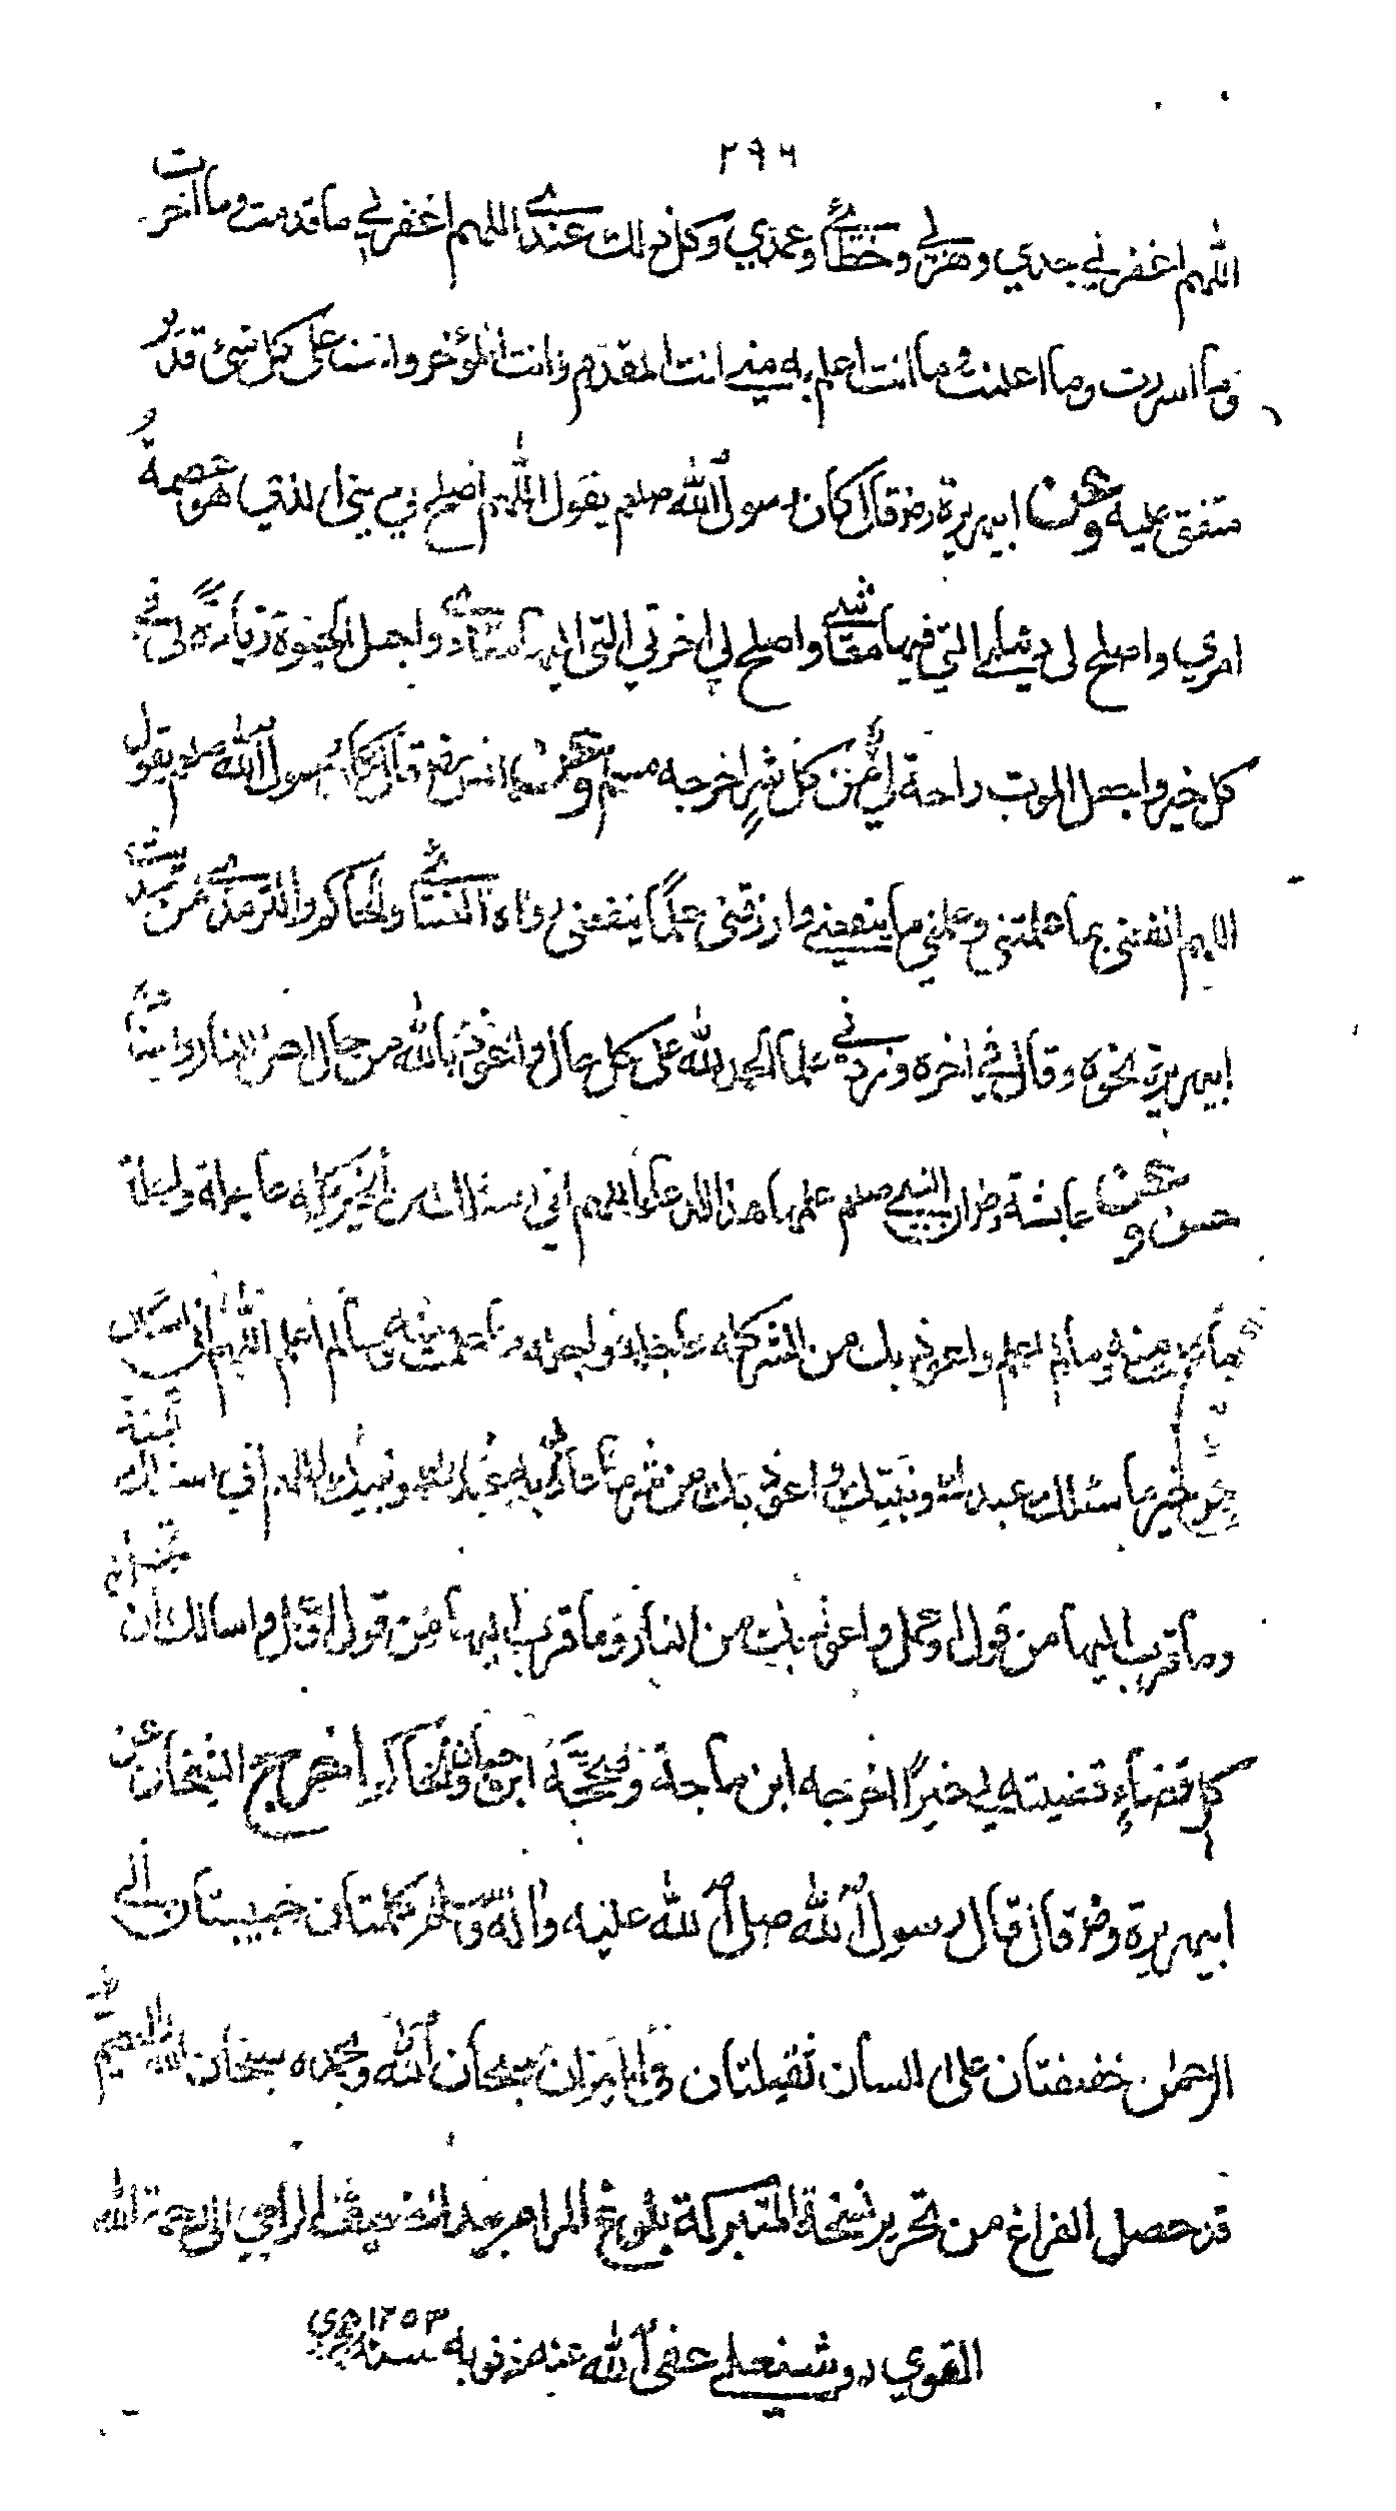 ٢٩٦
اللهم اغفر لي جدي وهزلي وخطائي وعمدي وكل ذلك عندي اللهم اغفر لي ما قدمت وما اخرت
وما اسررت وما اعلنت وما انت اعلم به مني انت المقدم وانت المؤخر وانت على كل شئ قدير
متفق عليه وعن ابيهريرة رض قال كان رسول الله صلعم يقول اللهم اصلح لي ديني الذي هو عصمة
امري واصلح لي دنياي التي فيها معاشي واصلح لي اخرتي التي اليها معادي واجعل الحيوة زيادة لي في
كل خير واجعل الموت راحة لي من كل شر اخرجه مسلم وعن انس رض قال كان رسول الله صلعم يقول
اللهم انفعني بما علمتني وعلمني ما ينفعني وارزقني علما ينفعني رواه النسائي والحاكم والترمذي من حديث
ابيهريرة نحوه وقال في اخره وزدني علما الحمد لله على كل حال واعوذ بالله من حال اهل النار واسناده
حسن وعن عايشة رض ان النبي صلعم علمها هذا الدعا اللهم اني اسئلك من الخير كله عاجله واجله
ما علمت منه وما لم اعلم واعوذ بك من الشر كله عاجله واجله ما علمت منه وما لم اعلم اللهم اني اسئلك
من خير ما سئلك عبدك ونبيك واعوذ بك من شر ما عاذ به عبدك ونبيك اللهم اني اسئلك الجنة
وما قرب اليها من قول او عمل واعوذ بك من النار وما قرب اليها من قول او عمل واسالك ان تجعل
كل قضاء قضيته لي خيرا اخرجه ابن ماجة وصححه ابن حبان والحاكم واخرج الشيخان عن
ابيهريرة رض قال قال رسول الله صلى الله عليه واله وسلم كلمتان حبيبتان الى
الرحمن خفيفتان على اللسان ثقيلتان في الميزان سبحان الله وبحمده سبحان الله العظيم
قد حصل الفراغ من تحرير نسخة المتبركة بلوغ المرام بيد الضعيف الراجي الى رحمة الله
القوي عفى الله عنه ذنوبه سنه ١٢٥٣ هجري